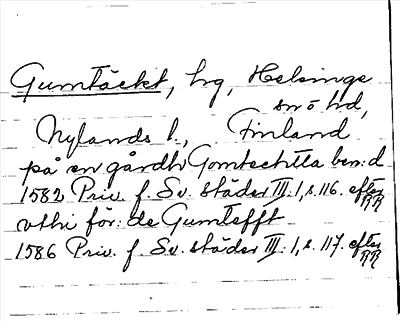 Gumtäckt, hg, Helsinge
sn o hd,
Nylands l., Finland
på en gårdh Gomtechtta ben:d
1582 Priv. f. Sv. städer III:1, s. 116. efter RR
vthi för:de Gumtefft
1586 Priv. f. Sv. städer III:1, s. 117. efter RR